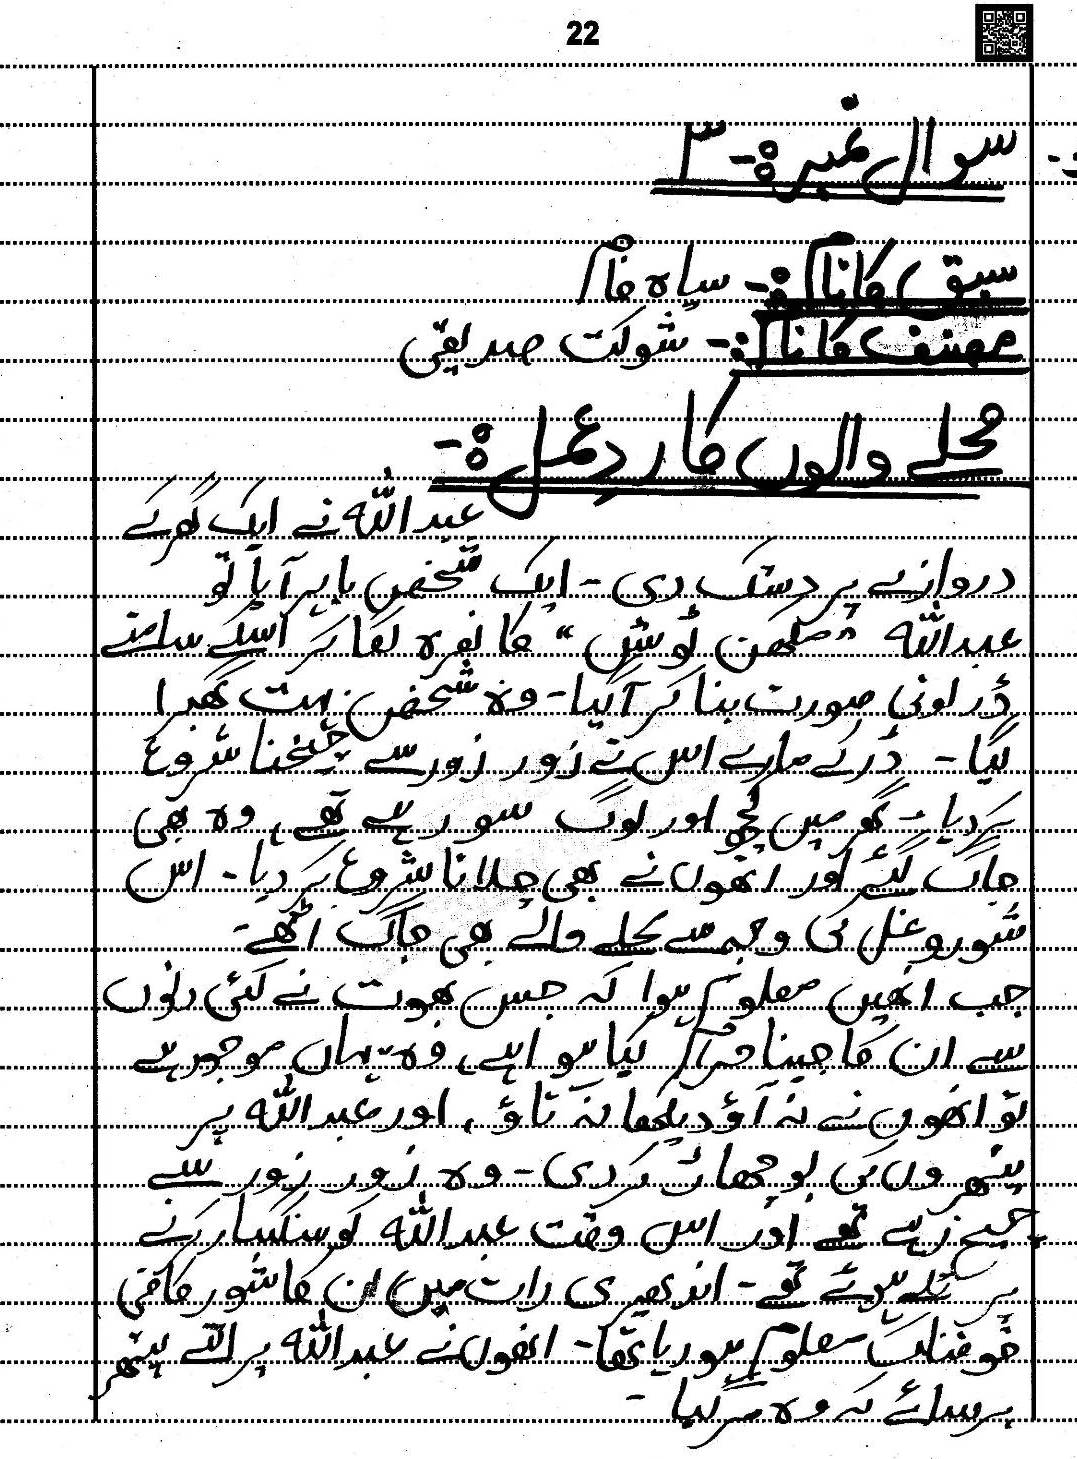 22
سوال نمبر ۳:-
سبق کا نام:- سیاہ فام
مصنف کا نام:- شوکت صدیقی
محلے والوں کا ردِعمل:-
عبداللہ نے ایک گھر کے
دروازے پر دستک دی - ایک شخص باہر آیا تو
عبداللہ "مکھن ٹوش" کا نعرہ لگا کر اسکے سامنے
ڈراونی صورت بنا کر آگیا - وہ شخص بہت گھبرا
گیا - ڈر کے مارے اس نے زور زور سے چیخنا شروع
کردیا - گھر میں کچھ اور لوگ سو رہے تھے، وہ بھی
جاگ گئے اور انھوں نے بھی چلانا شروع کردیا - اس
شوروغل کی وجہ سے محلے والے بھی جاگ اٹھے -
جب انھیں معلوم ہوا کہ جس بھوت نے کئی دنوں
سے ان کا جینا حرام کیا ہوا ہے، وہ یہاں موجود ہے
تو انھوں نے نہ آؤ دیکھا نہ تاؤ، اور عبداللہ پر
پتھروں کی بوچھاڑ کردی - وہ زور زور سے
چیخ رہے تھے اور اس وقت عبداللہ کو سنگسار کرنے
پر تلے ہوئے تھے - اندھیری رات میں ان کا شور کافی
خوفناک معلوم ہورہا تھا - انھوں نے عبداللہ پر اتنے پتھر
برسائے کہ وہ مرگیا -